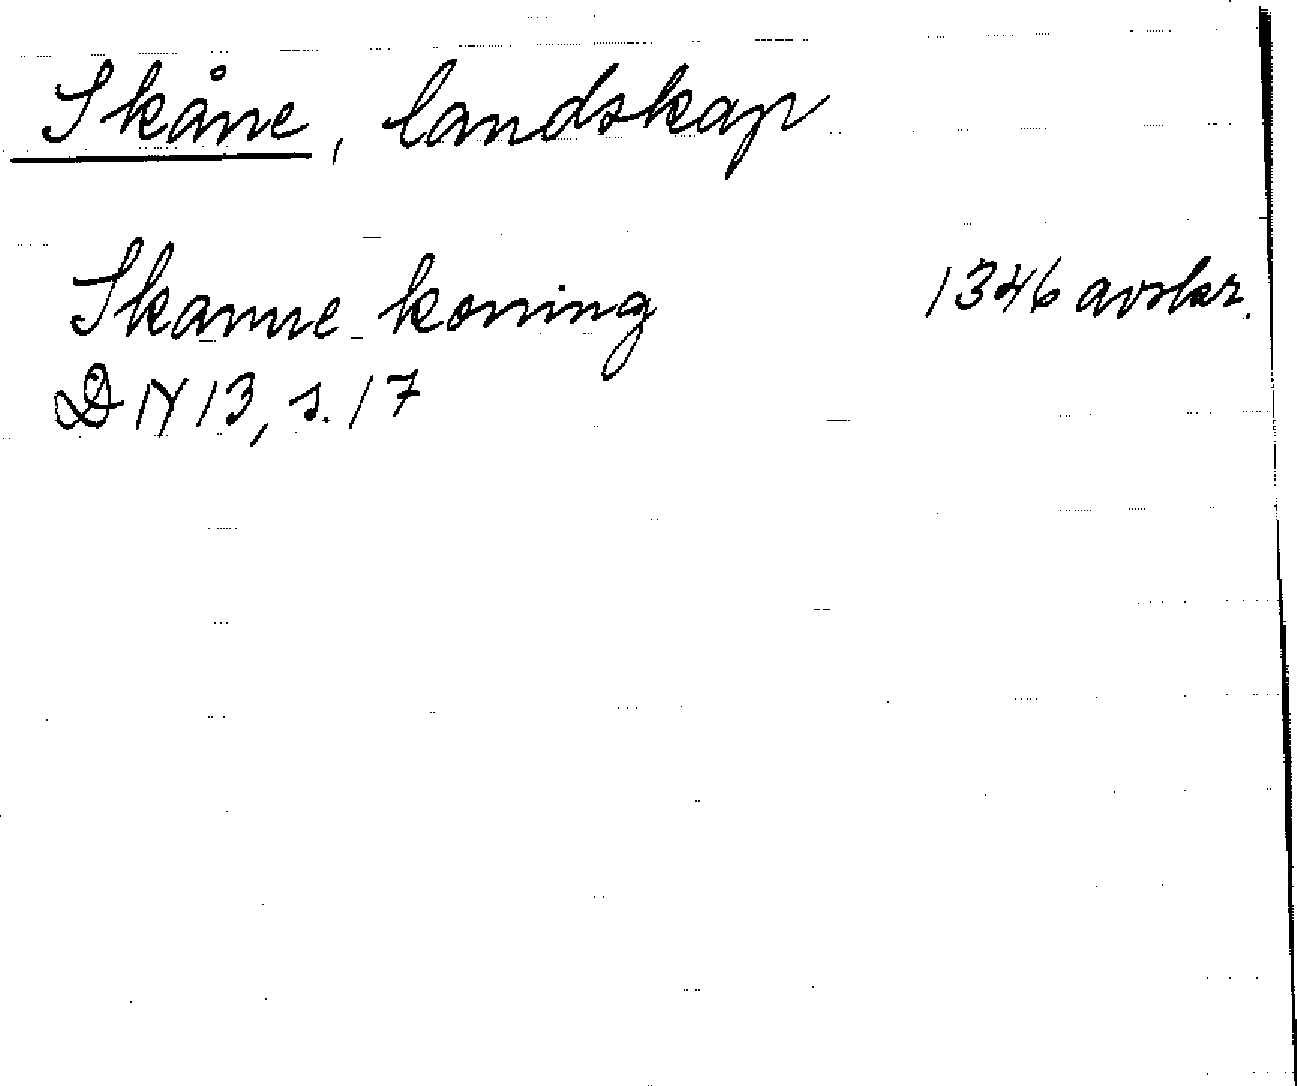 Skåne, landskap
Skanne koning 1346 avskr.
DN 13, s. 17